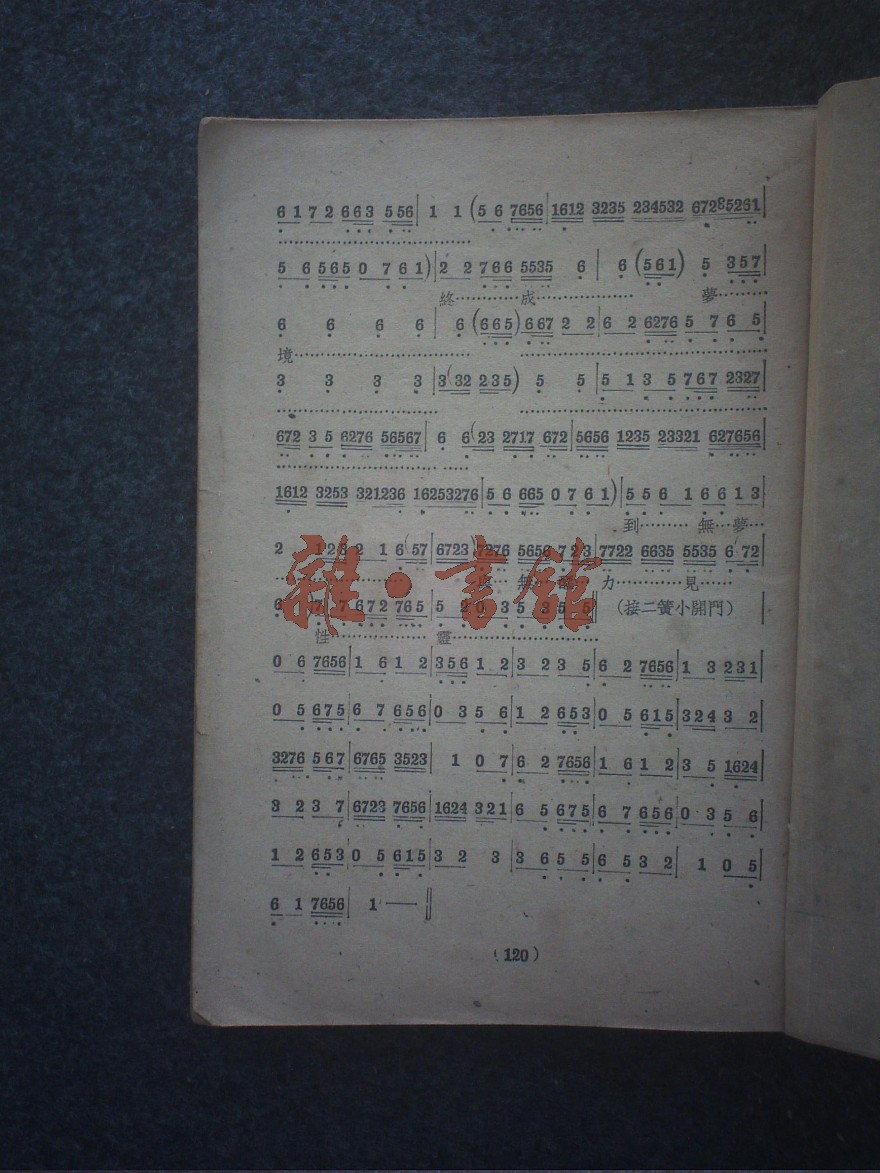 6 1 7 2 663 556| 1 1 (5 6 7656|1612 3235 234532 67285261|
5 6 565 0 7 6 1)|2 2 766 5535 6 | 6 (561) 5 357|
終………成…………………夢………
6 6 6 6 | 6 (665)667 2 2|6 2 6276 5 7 6 5|
境……………………………………………………
3 3 3 3|3(32 235) 5 5|5 1 3 5 767 2327|
672 3 5 6276 56567| 6 6(23 2717 672|5656 1235 23321 627656|
1612 3253 321236 16253276|5 6 665 0 7 6 1)|5 5 6 1 6 6 1 3|
到………無…夢…
2 1 2 3 2 1 6(57|6723)7276 5656 7 2 3|7722 6635 5535 6(72|
無 力………見……
7 672 765|5 2 0 3 5 3 5 5‖ (接二簧小開門) |
性……………靈……………………
0 6 7656|1 6 1 2|356 1 2|3 2 3 5|6 2 7656|1 3 231|
0 5 675|6 7 656|0 3 5 6|1 2 653|0 5 615|324 3 2|
3276 567|6765 3523| 1 0 7|6 2 7656|1 6 1 2|3 5 1624|
3 2 3 7|6723 7656|1624 321|6 5 675|6 7 656|0 3 5 6|
1 2 653|0 5 615|3 2 3|3 6 5 5|6 5 3 2| 1 0 5|
6 1 7656| 1 —‖
(120)
雜·書館